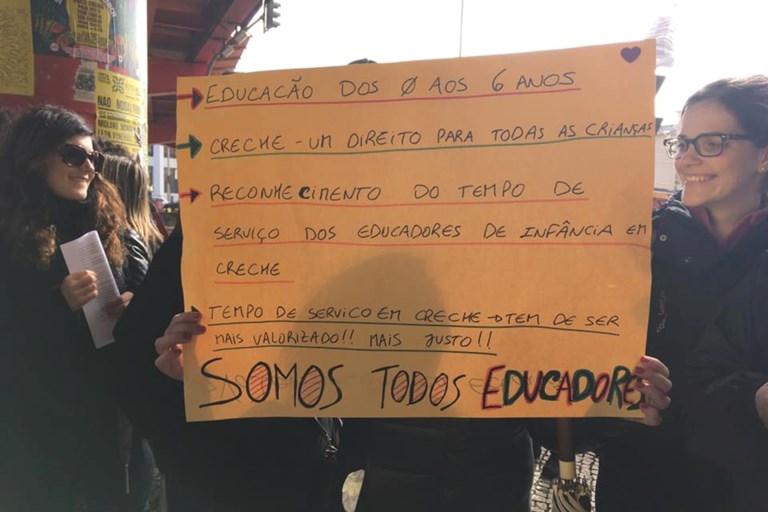 EDUCAÇÃO DOS 0 AOS 6 ANOS
CRECHE - UM DIREITO PARA TODAS AS CRIANÇAS
RECONHECIMENTO DO TEMPO DE
SERVIÇO DOS EDUCADORES DE INFÂNCIA EM
CRECHE
TEMPO DE SERVICO EM CRECHE → TEM DE SER
MAIS VALORIZADO!! MAIS JUSTO!!
SOMOS TODOS EDUCADORES